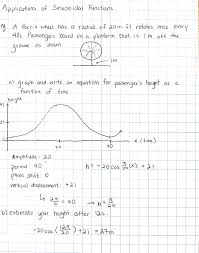 Applications of Sinusoidal Functions
eg. A ferris wheel has a radius of 20m. It rotates once every
40s. Passengers board on a platform that is 1m off the
ground as shown
1m
a) graph and write an equation for passenger's height as a
function of time
height
t (time)
20
40
Amplitude: 20
period: 40
phase shift: 0
vertical displacement: +21
h = -20cos π/20 (x) + 21
2π/k = 40 → k = π/20
b) estimate your height after 12s.
-20cos(12π/20) + 21 = 27m